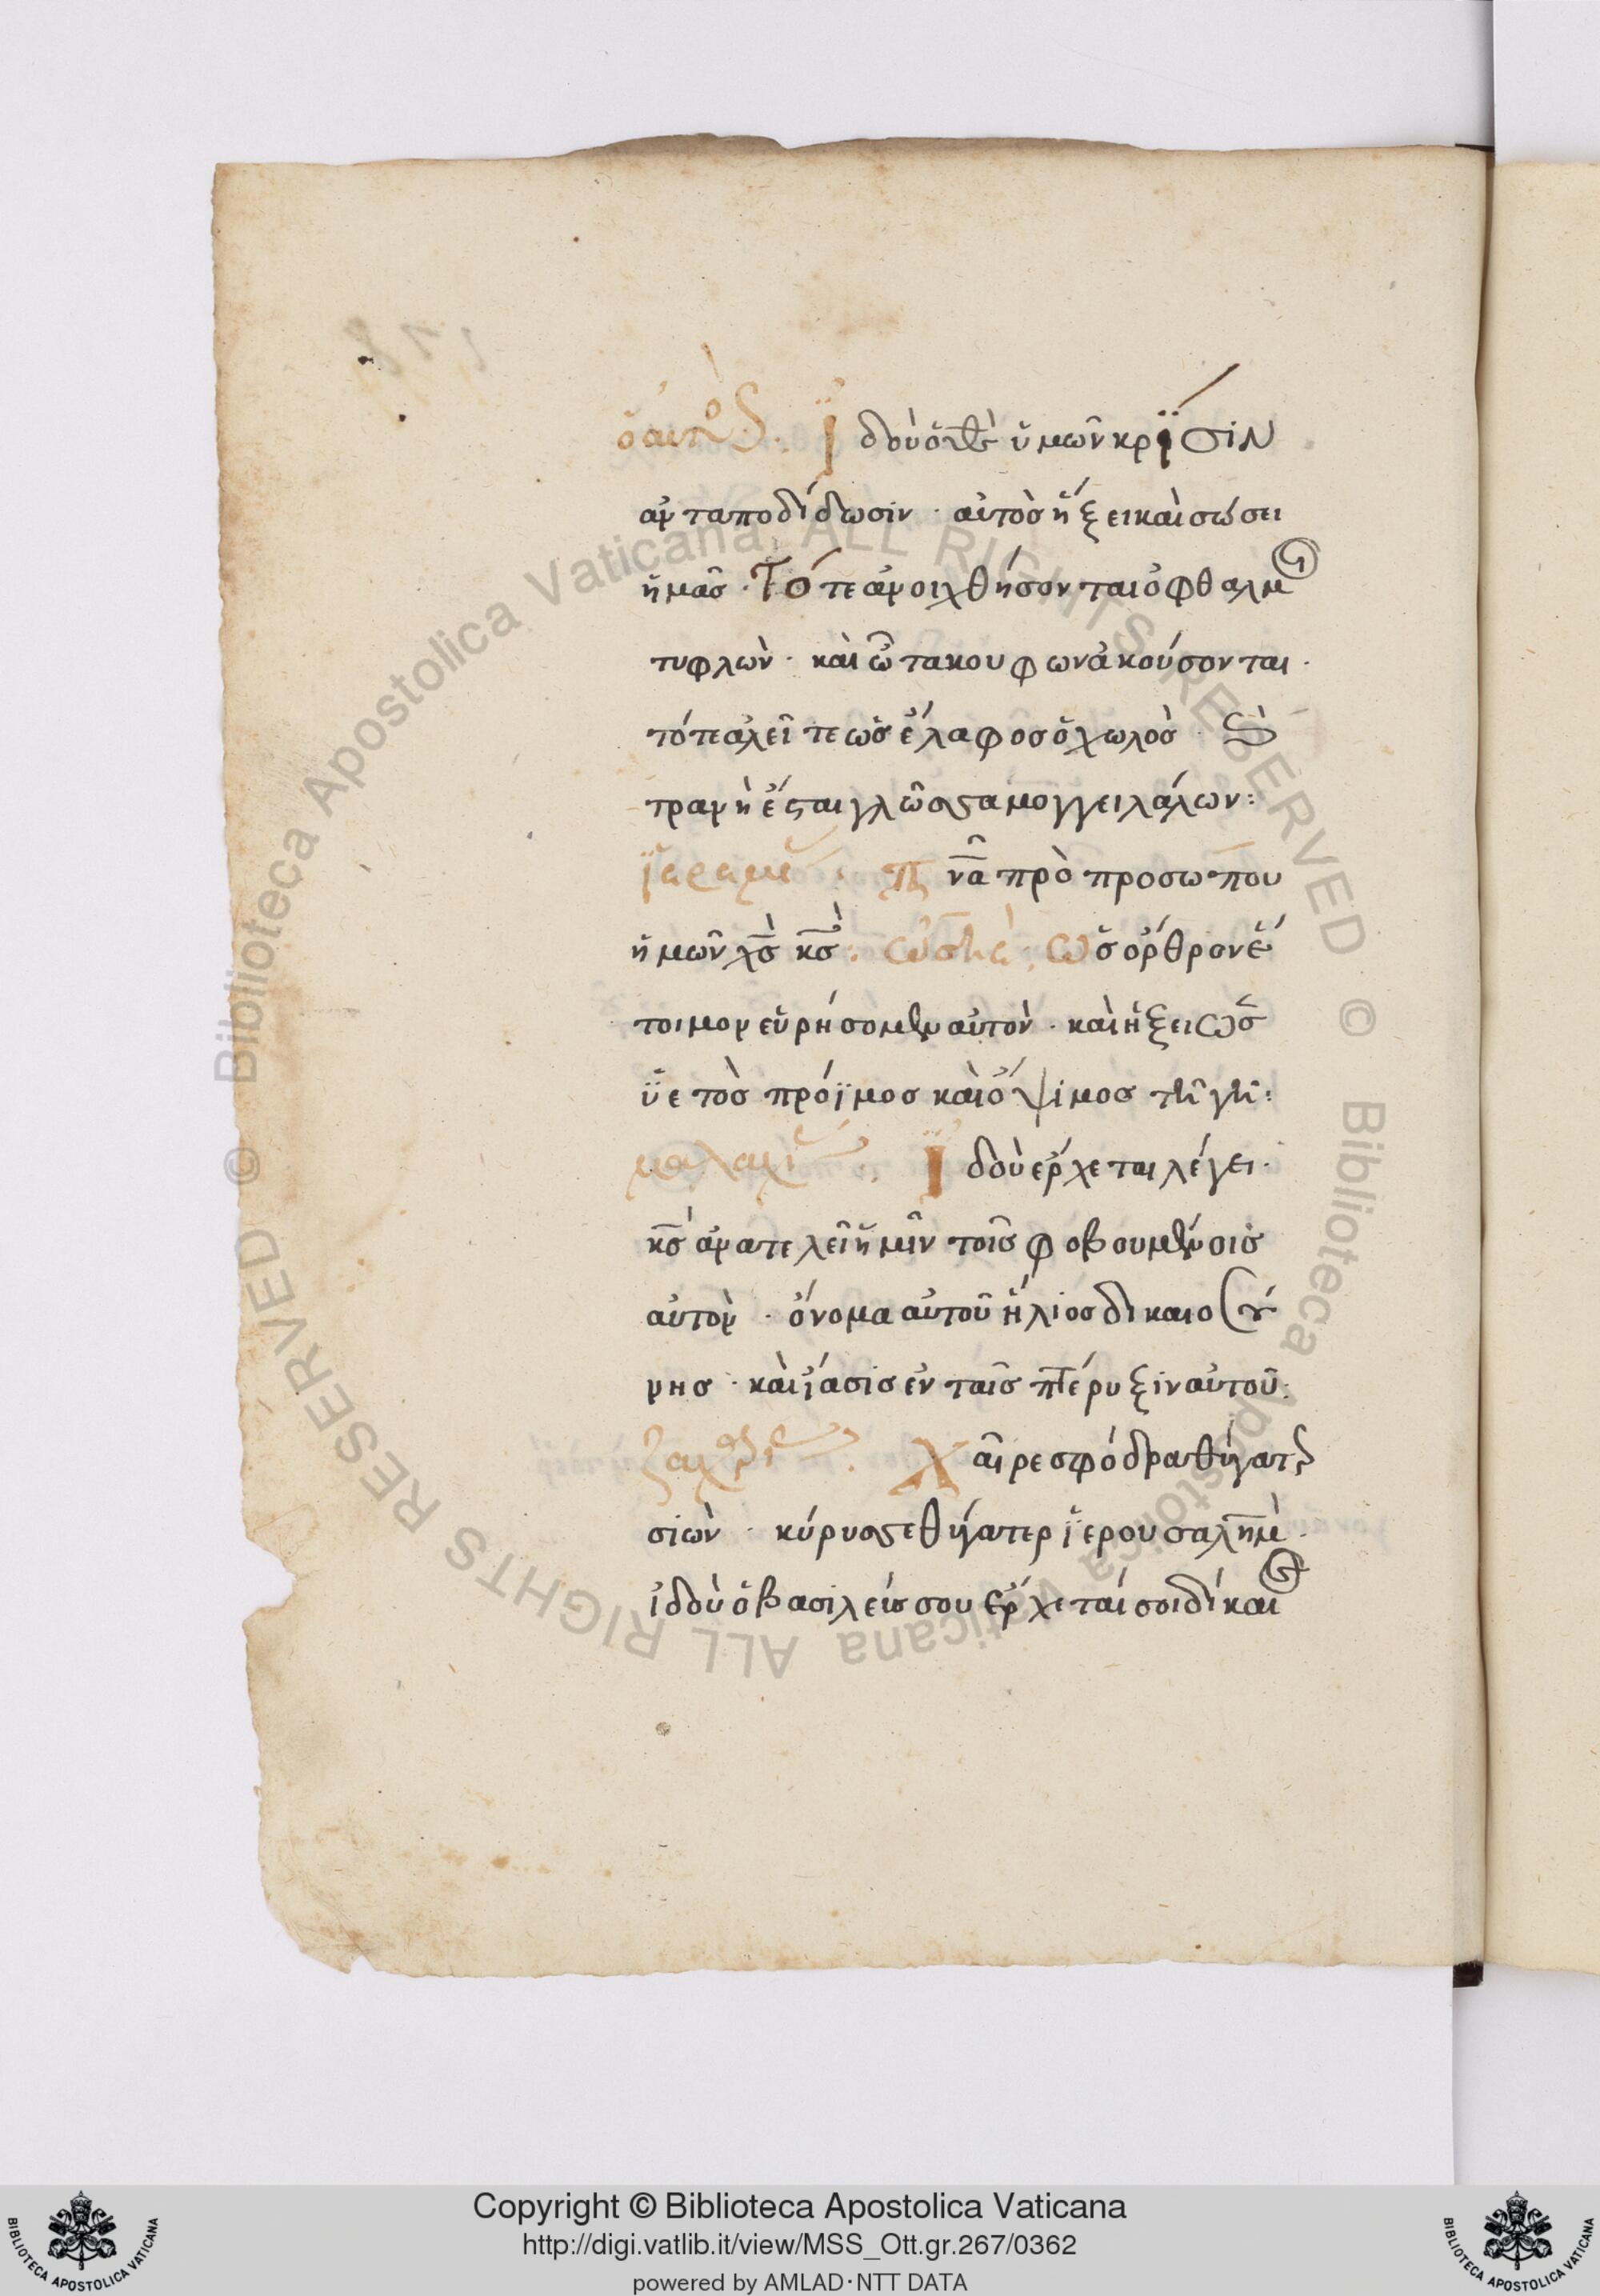 ὁ αὐτὸς. Ἰδοὺ ὁ θεὸς ὑμῶν κρίσιν
ἀνταποδίδωσιν · αὐτὸς ἥξει καὶ σώσει
ἡμᾶς · Τότε ἀνοιχθήσονται ὀφθαλμοὶ
τυφλῶν · καὶ ὦτα κουφων ἀκούσονται ·
τότε ἁλεῖτε ὡς ἔλαφος ὁ χωλὸς · καὶ
τρανὴ ἔσται γλῶσσα μογγειλάλων :
ἱερεμί · πνᾶ πρὸ προσωπου
ἡμῶν χς κς : ὡσηὲ · ὡς ὄρθρον ἕ
τοιμον εὑρήσομεν αὐτὸν · καὶ ἥξει ὡς
ὑετὸς πρόϊμος καὶ ὄψιμος τῆ γῆ :
μαλαχί · Ἰδοὺ ἔρχεται λέγει ·
κς ἀνατελεῖ ἡμῖν τοῖς φοβουμένοις
αὐτον · ὄνομα αὐτοῦ ἥλιος δικαιοσύ
νης · καὶ ἴασις ἐν ταῖς πτέρυξιν αὐτοῦ :
ζαχαρί · Χαῖρε σφόδρα θύγατερ
σιὼν · κύρυσσε θύγατερ ἱερουσαλὴμ ·
ἰδοὺ ὁ βασιλεύς σου ἔρχεταί σοι δίκαιος
Copyright © Biblioteca Apostolica Vaticana
http://digi.vatlib.it/view/MSS_Ott.gr.267/0362
powered by AMLAD·NTT DATA
BIBLIOTECA APOSTOLICA VATICANA
BIBLIOTECA APOSTOLICA VATICANA
© Biblioteca Apostolica Vaticana ALL RIGHTS RESERVED © Biblioteca Apostolica Vaticana ALL RIGHTS RESERVED